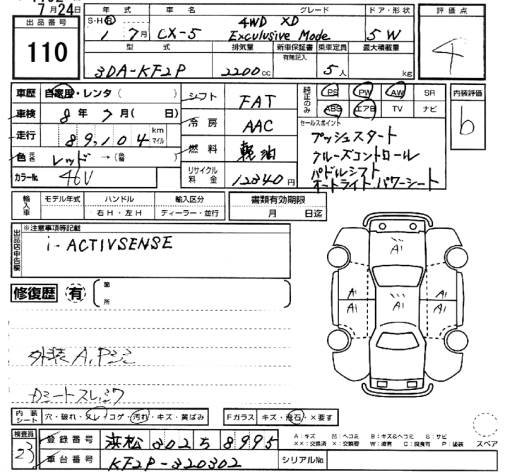 7月24日
出品番号
110
年式 車名 グレード ドア・形状 評価点
S・H・R 1年7月 CX-5 4WD XD Exculusive Mode 5 W
4
型式 排気量 新車保証書 乗車定員 最大積載量
有 (記載無)
3DA-KF2P 2200cc 5人 kg
車歴 自家用・レンタ ( )
車検 8年7月( 日)
走行 89,104 km マイル
色 元色 レッド →(替 )
カラーNo. 46V
シフト FAT
冷房 AAC
燃料 軽油
リサイクル料金 12340円
純正のみ PS PW AW SR
ABS エアB TV ナビ
内装評価
b
セールスポイント
プッシュスタート
クルーズコントロール
パドルシフト
オートライト パワーシート
輸入車 モデル年式 ハンドル 輸入区分 書類有効期限
右H・左H ディーラー・並行 月 日迄
出品店申告欄
※注意事項等記載
i-ACTIVSENSE
修復歴 有 箇所
外装A,Pシミ
Dシートスレ,シワ
A1
A1 A1 A1
A1 A1
内装シート 穴・破れ・スレ・コゲ・汚れ・キズ・黄ばみ
Fガラス キズ・飛石・×要す
検査員
23
登録番号 浜松 302 ち 8995
車台番号 KF2P-320302
シリアルNo.
A:キズ U:ヘコミ B:キズ&ヘコミ S:サビ
XX:交換済 X:交換要 W:波有 C:腐食有 P:塗装
スペア